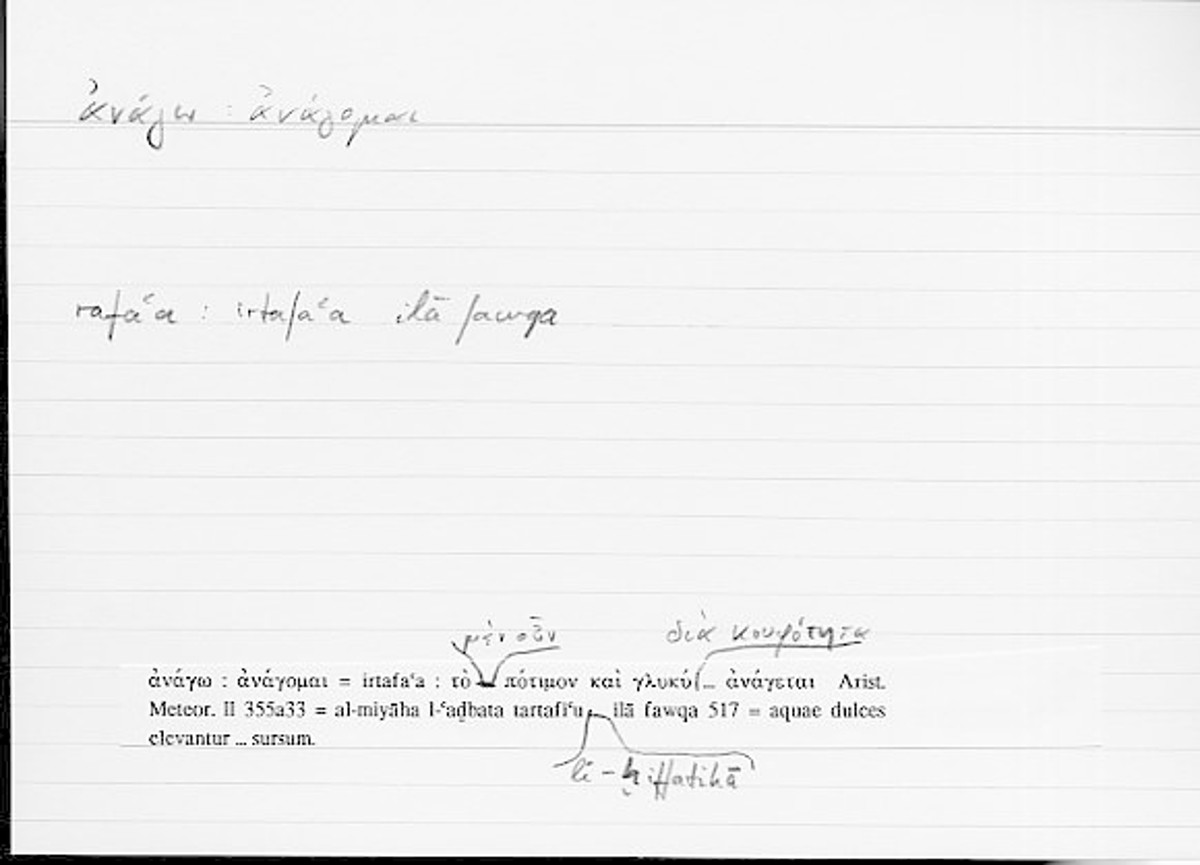 ἀνάγω : ἀνάγομαι
rafaʿa : irtafaʿa ilā fawqa
μὲν οὖν διὰ κουφότητα
ἀνάγω : ἀνάγομαι = irtafaʿa : τὸ πότιμον καὶ γλυκύ ... ἀνάγεται Arist.
Meteor. II 355a33 = al-miyāha l-ʿaḏbata tartafiʿu ilā fawqa 517 = aquae dulces
elevantur ... sursum.
li-ḫiffatihā